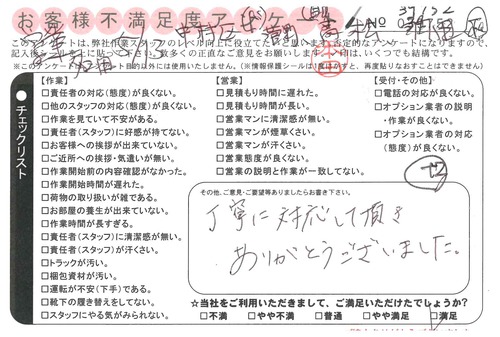 お客様不満足度アンケ
このアンケートは、弊社作業スタッフのレベル向上に役立てたいと思います。否定的なアンケートになりますので、
チェックリスト
【作業】
□責任者の対応(態度)が良くない。
□他のスタッフの対応(態度)が良くない。
□作業を見ていて不安がある。
□責任者(スタッフ)に好感が持てない。
□お客様への挨拶が出来ていない。
□ご近所への挨拶・気遣いが無い。
□作業開始前の内容確認がなかった。
□作業開始時間が遅れた。
□荷物の取り扱いが雑である。
□お部屋の養生が出来ていない。
□作業時間が長すぎる。
□責任者(スタッフ)に清潔感が無い。
□責任者(スタッフ)が汗くさい。
□トラックが汚い。
□梱包資材が汚い。
□運転が不安(下手)である。
□靴下の履き替えをしてない。
□スタッフにやる気がみられない。
【営業】
□見積もり時間に遅れた。
□見積もり時間が長い。
□営業マンに清潔感が無い。
□営業マンが煙草くさい。
□営業マンが汗くさい。
□営業態度が良くない。
□営業の説明と作業が一致してない。
【受付・その他】
□電話の対応が良くない。
□オプション業者の説明
・作業が良くない。
□オプション業者の対応
(態度)が良くない。
その他、ご意見・ご要望等ありましたらお書き下さい。
丁寧に対応して頂き
ありがとうございました。
☆当社をご利用いただきまして、ご満足いただけたでしょうか?
□不満 □やや不満 □普通 □やや満足 □満足